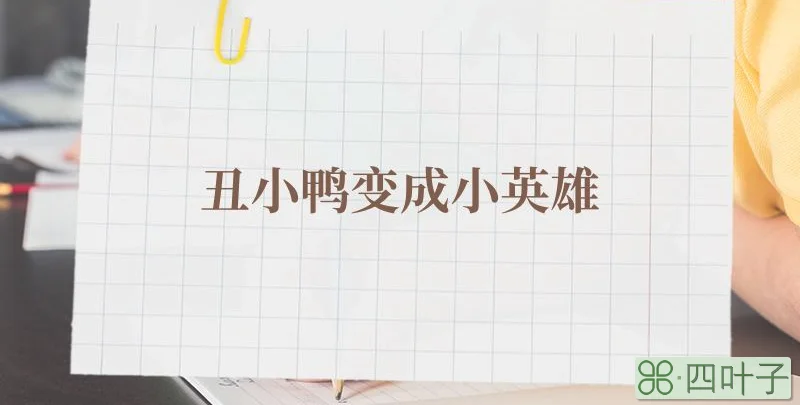 丑小鸭变成小英雄
四叶子